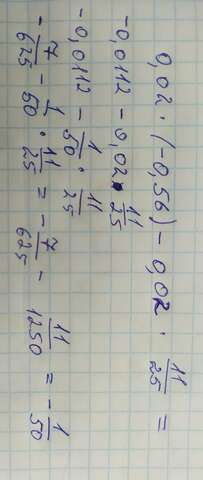 0,02 · (-0,56) - 0,02 · 11/25 =
-0,0112 - 0,02 · 11/25
-0,0112 - 1/50 · 11/25
-7/625 - 1/50 · 11/25 = -7/625 - 11/1250 = -1/50